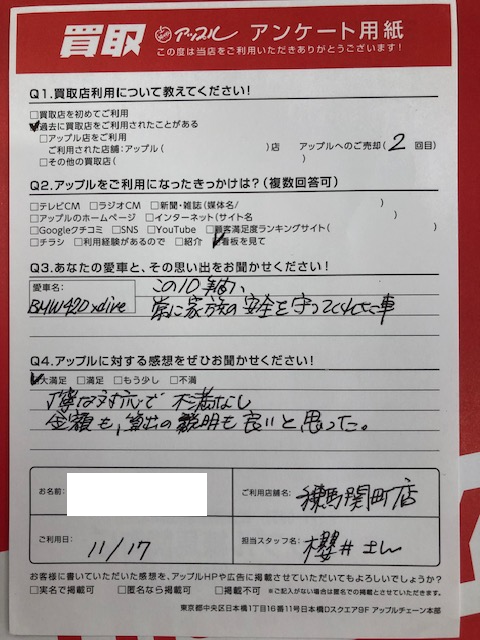 買取 アップル アンケート用紙
この度は当店をご利用いただきありがとうございます!
Q1.買取店利用について教えてください!
□買取店を初めてご利用
☑過去に買取店をご利用されたことがある
□アップル店をご利用
ご利用された店舗:アップル( )店 アップルへのご売却( 2 回目)
□その他の買取店( )
Q2.アップルをご利用になったきっかけは?(複数回答可)
□テレビCM □ラジオCM □新聞・雑誌(媒体名/ )
□アップルのホームページ □インターネット(サイト名 )
□Googleクチコミ □SNS □YouTube □顧客満足度ランキングサイト( )
□チラシ □利用経験があるので □紹介 ☑看板を見て
Q3.あなたの愛車と、その思い出をお聞かせください!
愛車名: この10年間、
BMW420xdive 常に家族の安全を守ってくれた車
Q4.アップルに対する感想をぜひお聞かせください!
☑大満足 □満足 □もう少し □不満
丁寧な対応で不満なし
金額も,算出の説明も良いと思った。
お名前: ご利用店舗名: 練馬関町店
ご利用日: 11/17 担当スタッフ名: 櫻井さん
お客様に書いていただいた感想を、アップルHPや広告に掲載させていただいてもよろしいでしょうか?
□実名で掲載可 □匿名なら掲載可 □掲載不可 ※ご記入がない場合は匿名での掲載とさせていただきます。
東京都中央区日本橋1丁目16番11号日本橋Dスクエア9F アップルチェーン本部